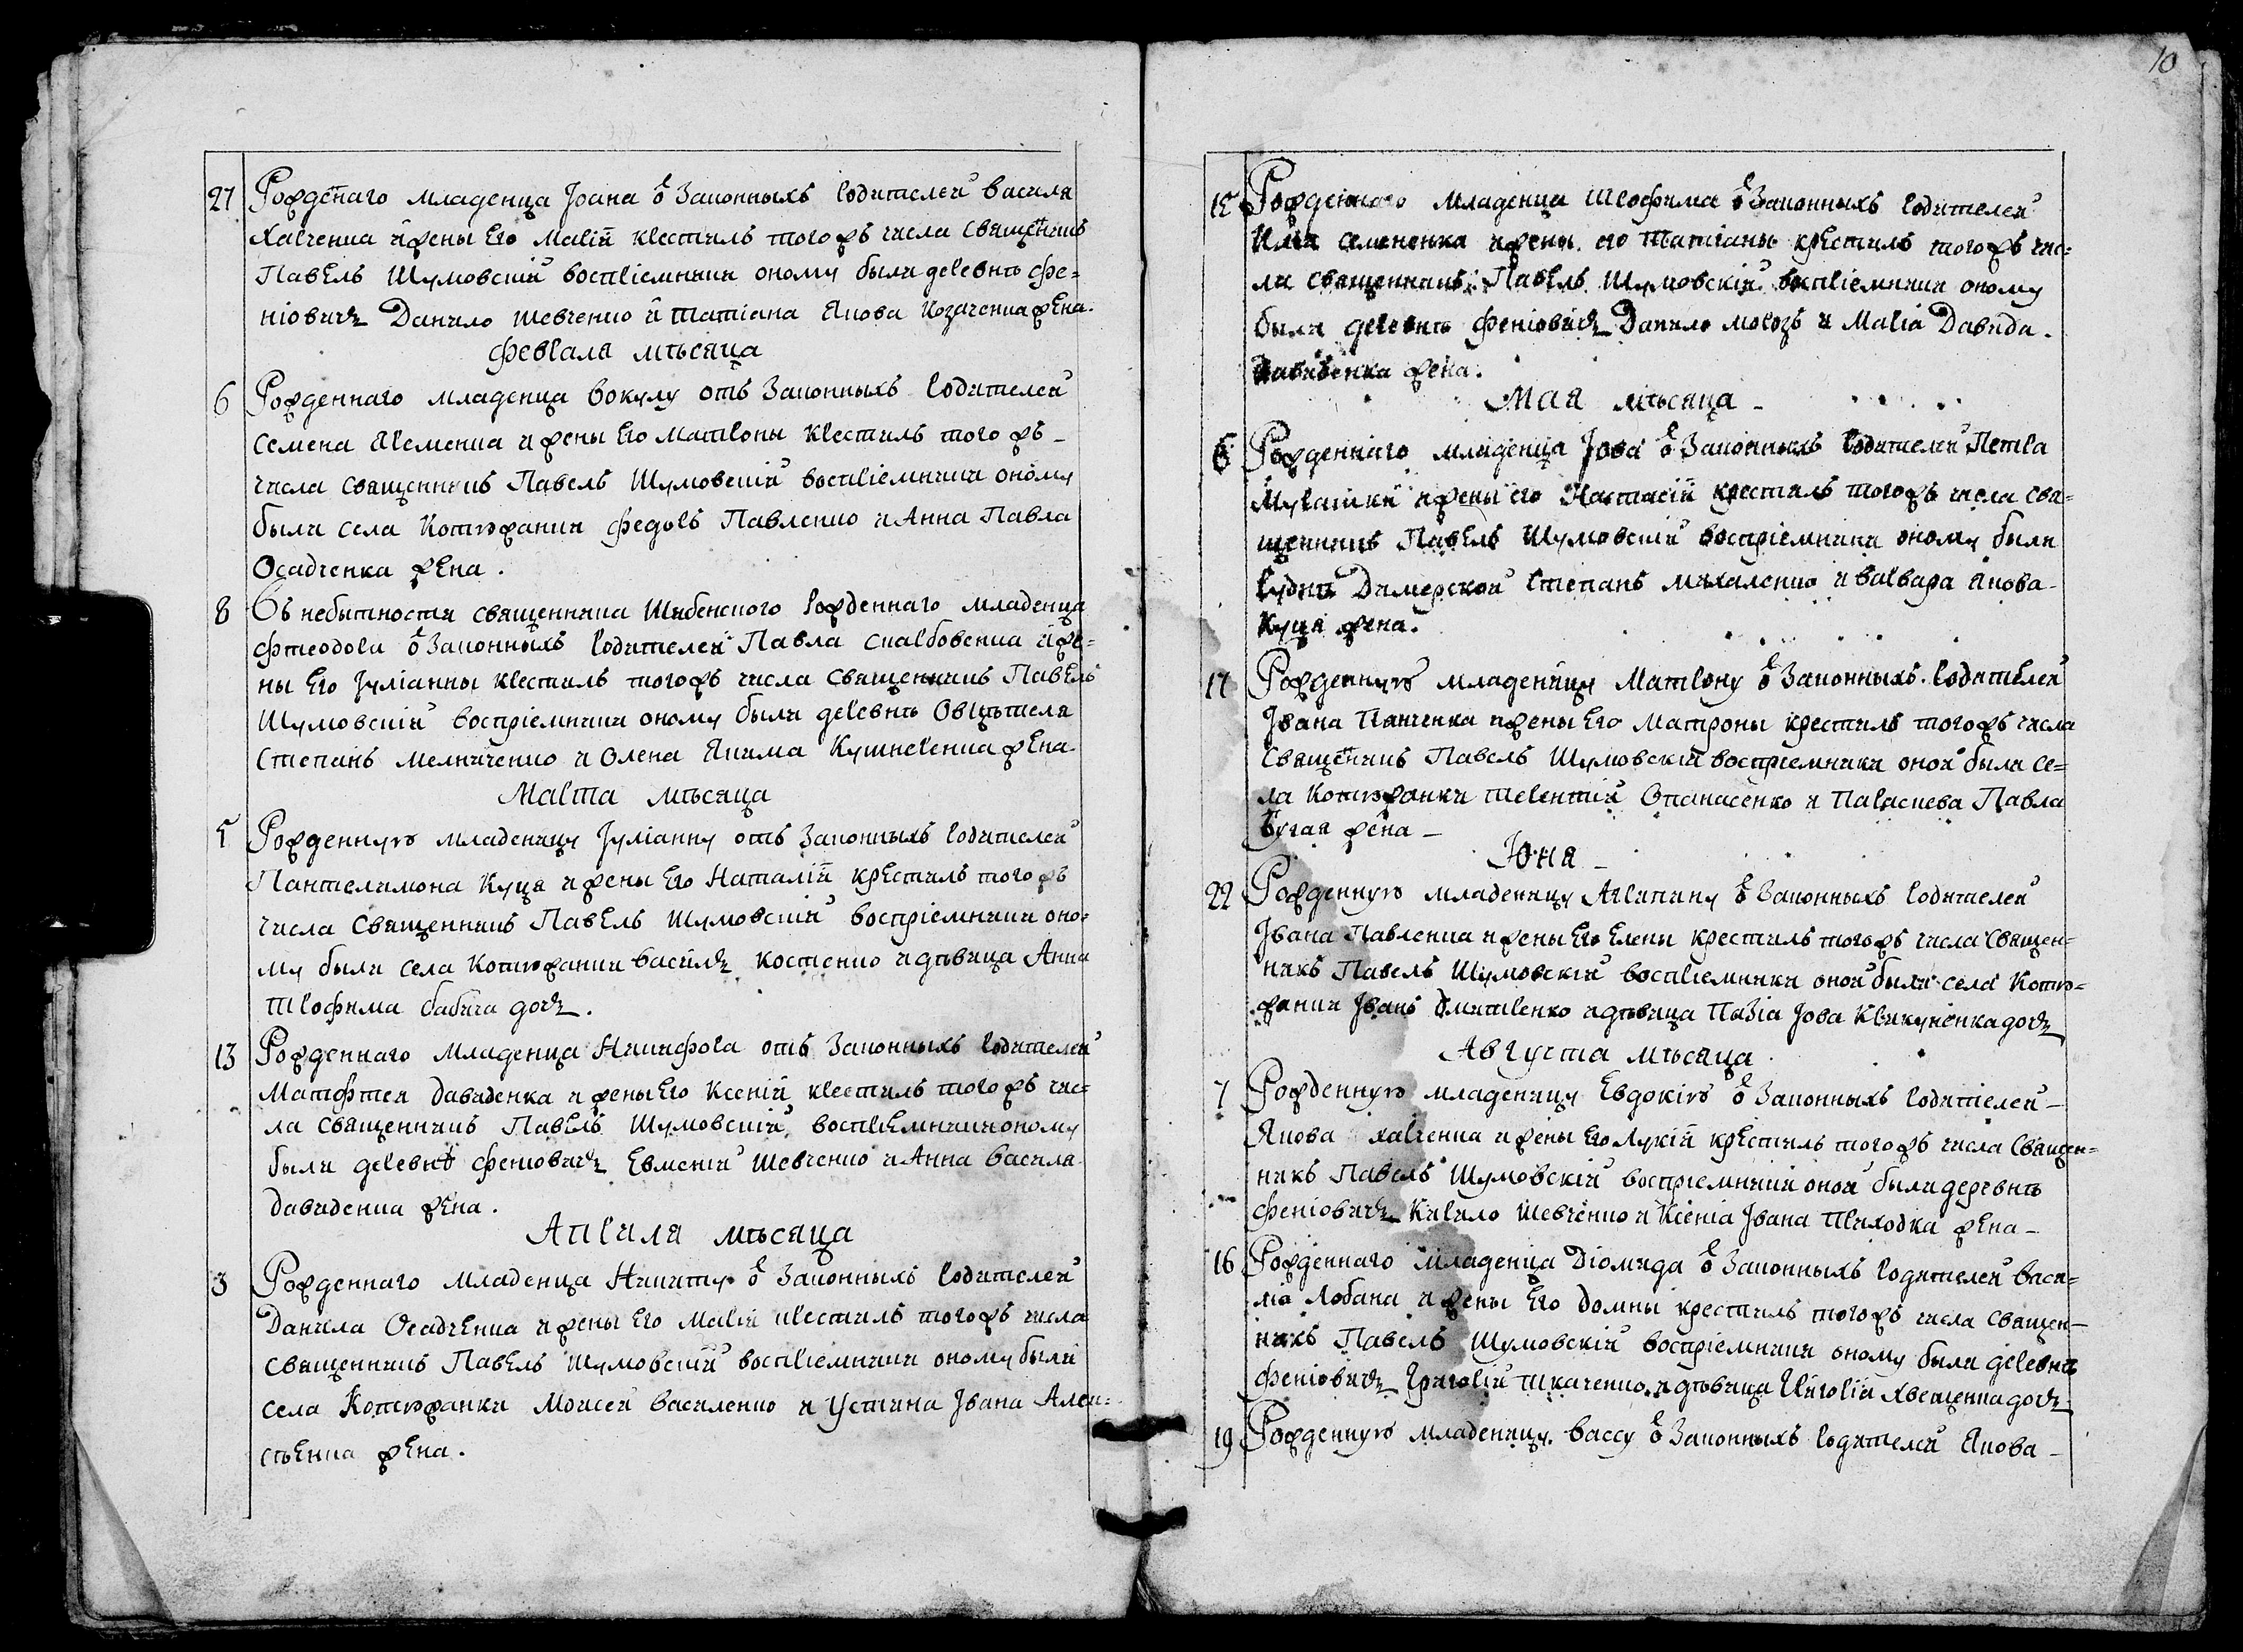 27 Рожденаго младенца Іоана ѿ Законныхъ родителей василя
Харченка и жены Его Маріи крестилъ тогожъ числа Священикъ
ПавЕлъ Шумовскій воспріемники оному были деревнѣ Фе=
ніовичъ Данило шевченко и Татіана Якова Козаченка жЕна.
Февраля мѣсяца
6 Рожденнаго младенца Вокулу отъ Законныхъ родителей
Семена Яременка и жены Его Матроны Крестилъ того жъ
числа священникъ Павелъ Шумовскій воспріемники оному
были села Котюжанки Федоръ Павленко и Анна Павла
Осадченка жЕна.
8 Въ небытности священника Шибенского рожденнаго младенца
Фтеодора ѿ Законныхъ родителей Павла Скарбовенка и же=
ны Его Іуліанны крестилъ тогожъ числа священникъ ПавЕлъ
Шумовскій воспріемники оному были деревнѣ Овцѣтеля
Степанъ мелниченко и Олена Якима Кушнеренка жЕна
Марта мѣсяца
5 Рожденную младеницу Іуліанну отъ Законныхъ родителей
Пантелимона Куця и жены Его Наталіи крЕстилъ того жъ
числа Священникъ ПавЕлъ Шумовскій воспріемники оно=
му были села Котюжанки василъ костенко и дѣвица Анна
Трофима бабича дочъ.
13 Рожденнаго Младенца Никифора отъ Законныхъ родителей
Матфтея давиденка и жены Его Ксеніи крестилъ того жъ чис=
ла Священникъ ПавЕлъ Шумовскій воспріЕмники оному
были деревнѣ Феніовичъ Евменій Шевченко и Анна Василя
давиденка жЕна.
Априля мѣсяца
3 Рожденнаго Младенца Никиту ѿ Законныхъ родителей
Данила ОсадчЕнка и жены Его Маріи крестилъ тогожъ числа
священникъ ПавЕлъ Шумовскій воспріемники оному были
села Котюжанки Моисей Василенко и Устина Івана Алек=
сѣЕнка жЕна.
10
15 Рожденнаго Младенца Трофима ѿ Законныхъ родителей
Илии Семененка и жены его Татіаны крЕстилъ тогожъ чис=
ла священникъ ПавЕлъ Шумовскій воспріемники оному
были деревнѣ Феніовичъ Данило Морозъ и Марія Давида
Давиденка жена.
Мая мѣсяца
6 Рожденнаго младенца Іова ѿ Законныхъ родителей Петра
и жены его Настасіи крестилъ тогожъ числа свя=
щенникъ ПавЕлъ Шумовскій воспріемники оному были
Рудни Димерской Степанъ Михаленко и варвара Якова
Куця жена.
17 Рожденную младеницу Матрону ѿ Законныхъ родитЕлей
Івана Панченка и жены Его Матроны крестилъ тогожъ числа
Священикъ Павелъ Шумовскій воспріемники оной были се=
ла Котюжанки Терентій Опанасенко и Параскева Павла
Бугая жена
Юня
22 Рожденную младеницу Агрипину ѿ Законныхъ родителей
Івана Павленка и жены Его Елены крестилъ тогожъ числа Священ=
никъ Павелъ Шумовскій воспріемники оной были села Котю=
жанки Іванъ Дмитренко и дѣвица Пазія Іова дочъ
Августа мѣсяца
7 Рожденную младеницу Евдокію ѿ Законныхъ родителей
Якова харченка и жены Его Лукіи крЕстилъ тогожъ числа Священ=
никъ Павелъ Шумовскій воспріемники оной были деревнѣ
Феніовичъ Кирило Шевченко и Ксенія Івана Приходка жЕна
16 Рожденнаго младенца Діомида ѿ Законныхъ родителей васи=
лія Лобана и жены Его домны крестилъ тогожъ числа Священ=
никъ Павелъ Шумовскій воспріемники оному были деревнѣ
Феніовичъ Григорій ткаченко и дѣвица Хвещенка дочъ
19 Рожденную младеницу вассу ѿ Законныхъ родителей Якова